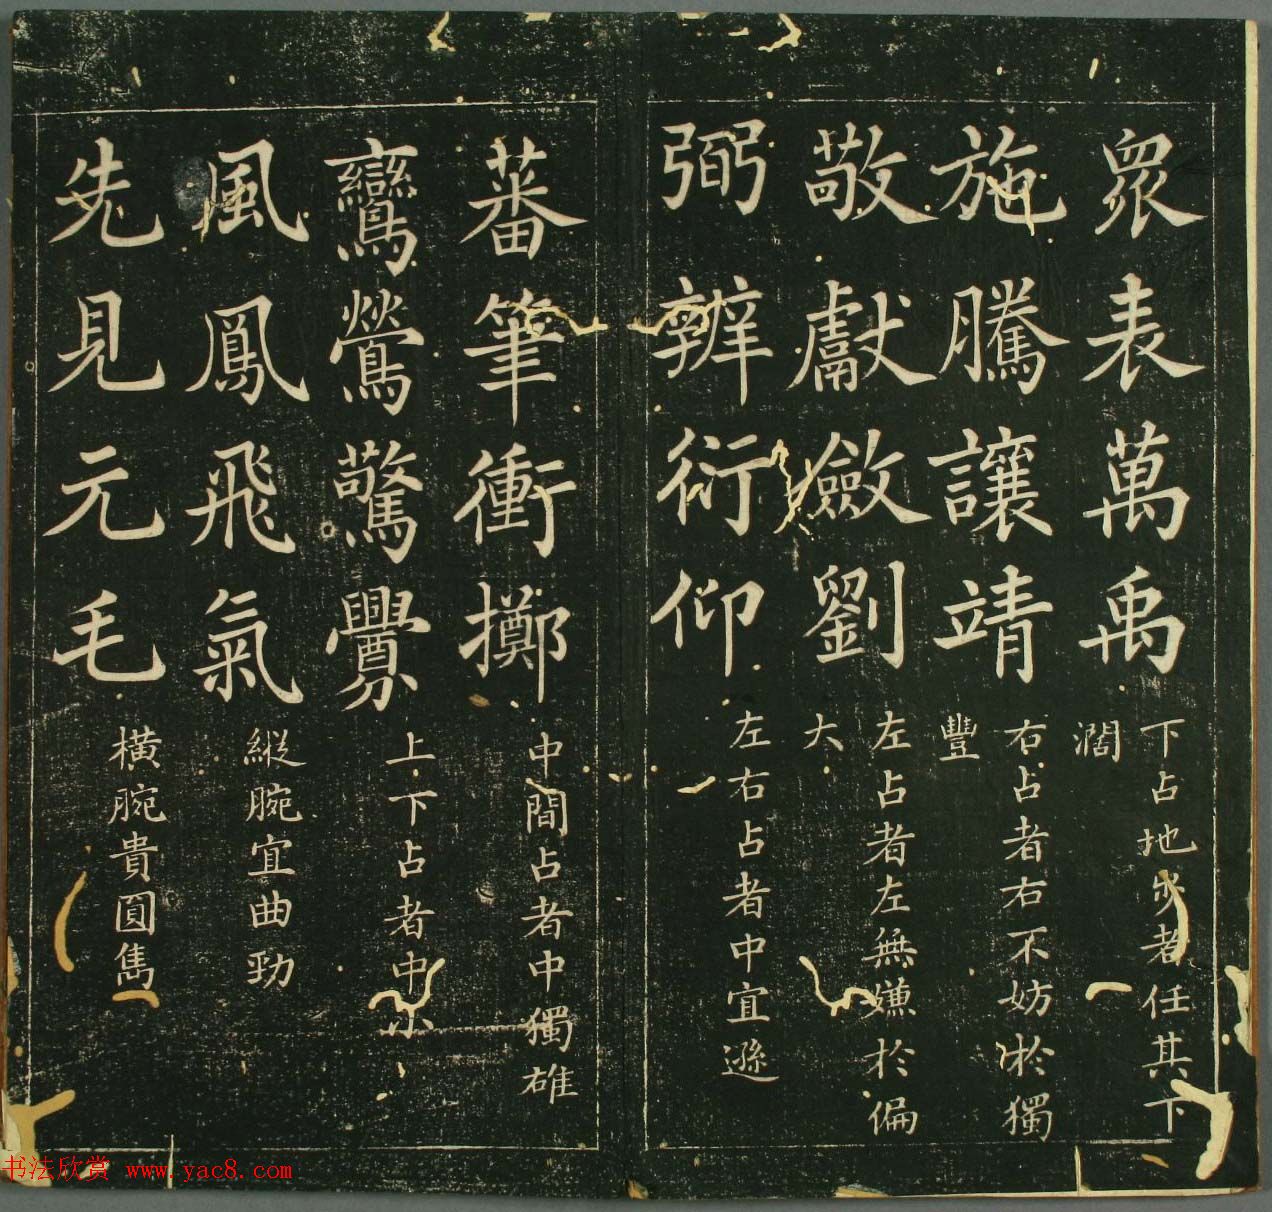 眾表萬禹下占地步者任其下
濶
施騰讓靖右占者右不妨於獨
豐
敬獻斂劉左占者左無嫌於偏
大
弼辦衍仰左右占者中宜遜
蕃筆衝擲中間占者中獨雄
鸞鶯驚釁上下占者中小
風鳳飛氣縱腕宜曲勁
先見元毛橫腕貴圓雋
书法欣赏 www.yac8.com